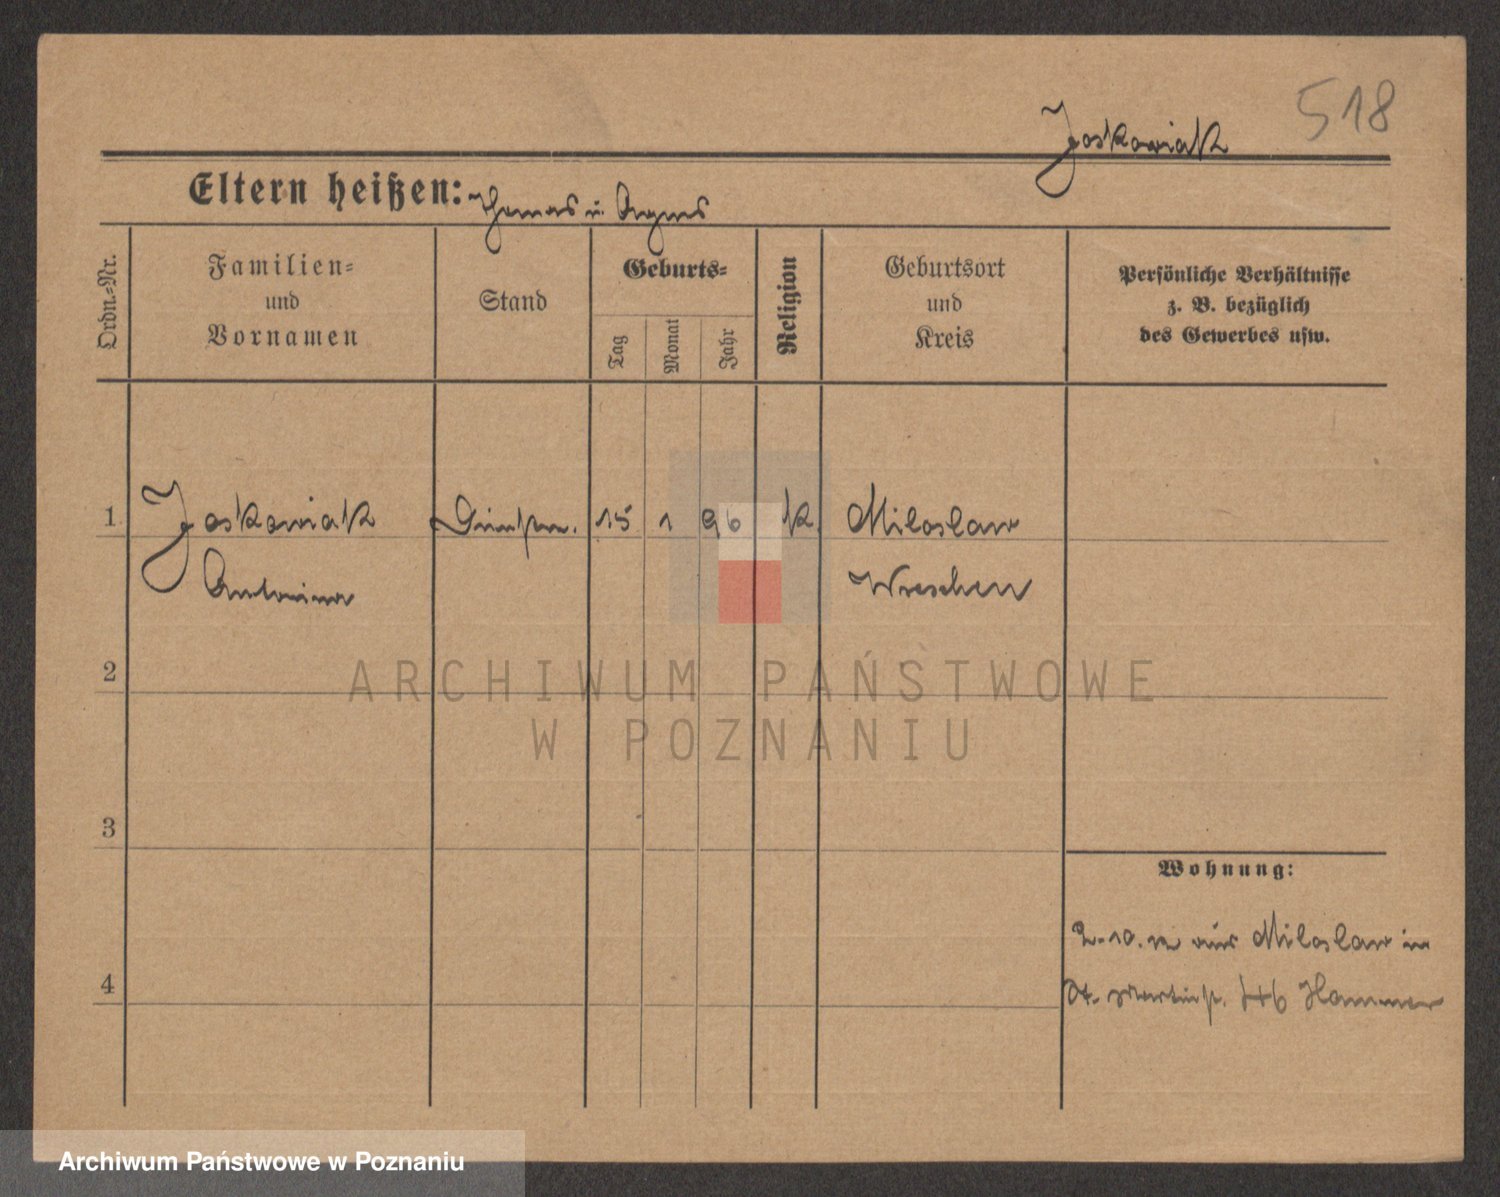 518
Joskowiak
Eltern heißen: Thomas u. Agnes
Ordn.=Nr.
Familien=
und
Vornamen
Stand
Geburts=
Tag
Monat
Jahr
Religion
Geburtsort
und
Kreis
Persönliche Verhältnisse
z. B. bezüglich
des Gewerbes usw.
1 Joskowiak 15 1 96 k. Miloslaw
Antonina Wreschen
2
3
4
Wohnung:
2.10.12 aus Miloslaw in
St. Martinstr. 46 Hammer
ARCHIWUM PAŃSTWOWE
W POZNANIU
Archiwum Państwowe w Poznaniu